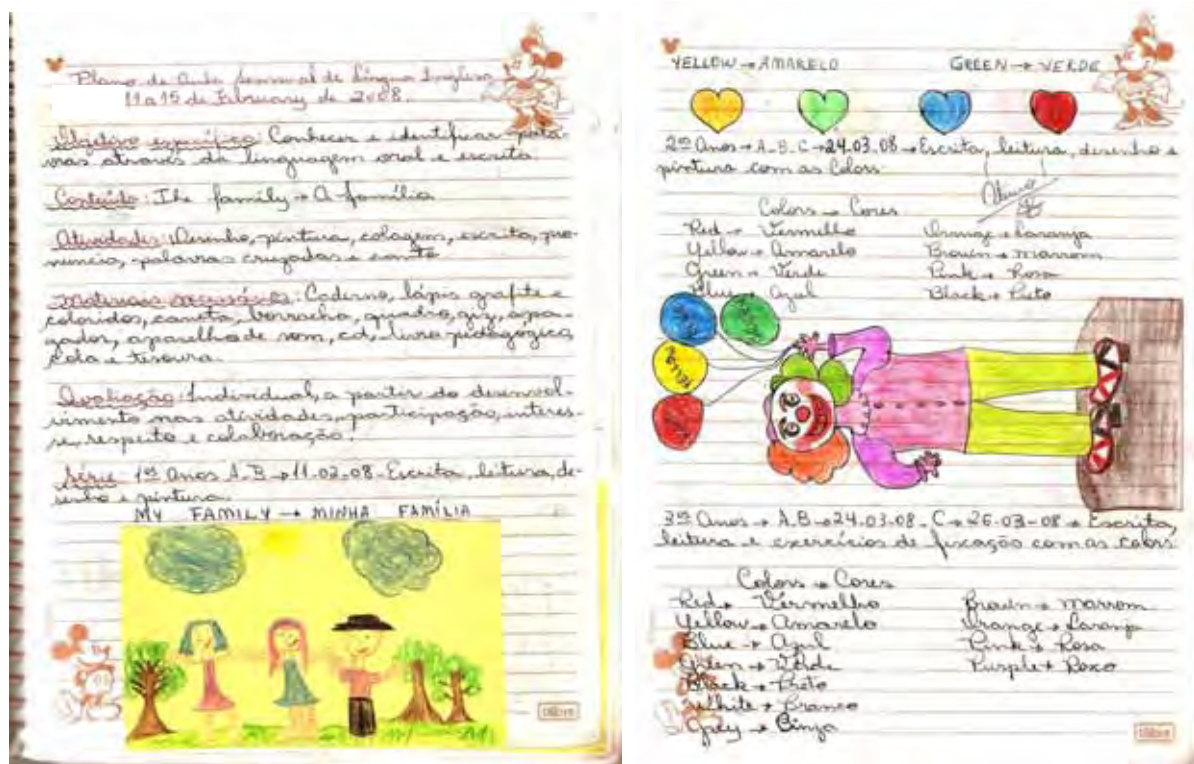 Plano de Aula Semanal de Língua Inglesa
11 a 15 de February de 2008.
Objetivo específico: Conhecer e identificar pala-
vras através da linguagem oral e escrita.
Conteúdo: The family → A família
Atividades: Desenho, pintura, colagem, escrita, pro-
nuncia, palavras cruzadas e
Materiais necessários: Caderno, lápis grafite e
coloridos, caneta, borracha, quadro, giz, apa-
gador, aparelho de som, cd, livro pedagógico,
cola e tesoura.
Avaliação: Individual, a partir do desenvol-
vimento nas atividades, participação, interes-
se, respeito e colaboração.
Série: 1ºs Anos A.B → 11.02.08 - Escrita, leitura, de-
senho e pintura.
MY FAMILY → MINHA FAMÍLIA
YELLOW → AMARELO GREEN → VERDE
2ºs Anos → A.B.C → 24.03.08 → Escrita, leitura, desenho e
pintura com as Colors.
Colors → Cores
Red → Vermelho Orange → Laranja
Yellow → Amarelo Brown → Marrom
Green → Verde Pink → Rosa
Blue → Azul Black → Preto
3ºs Anos → A.B → 24.03.08 - C → 26.03-08 → Escrita,
leitura e exercícios de fixação com as colors.
Colors → Cores
Red → Vermelho Brown → Marrom
Yellow → Amarelo Orange → Laranja
Blue → Azul Pink → Rosa
Green → Verde Purple → Roxo
Black → Preto
White → Branco
Grey → Cinza